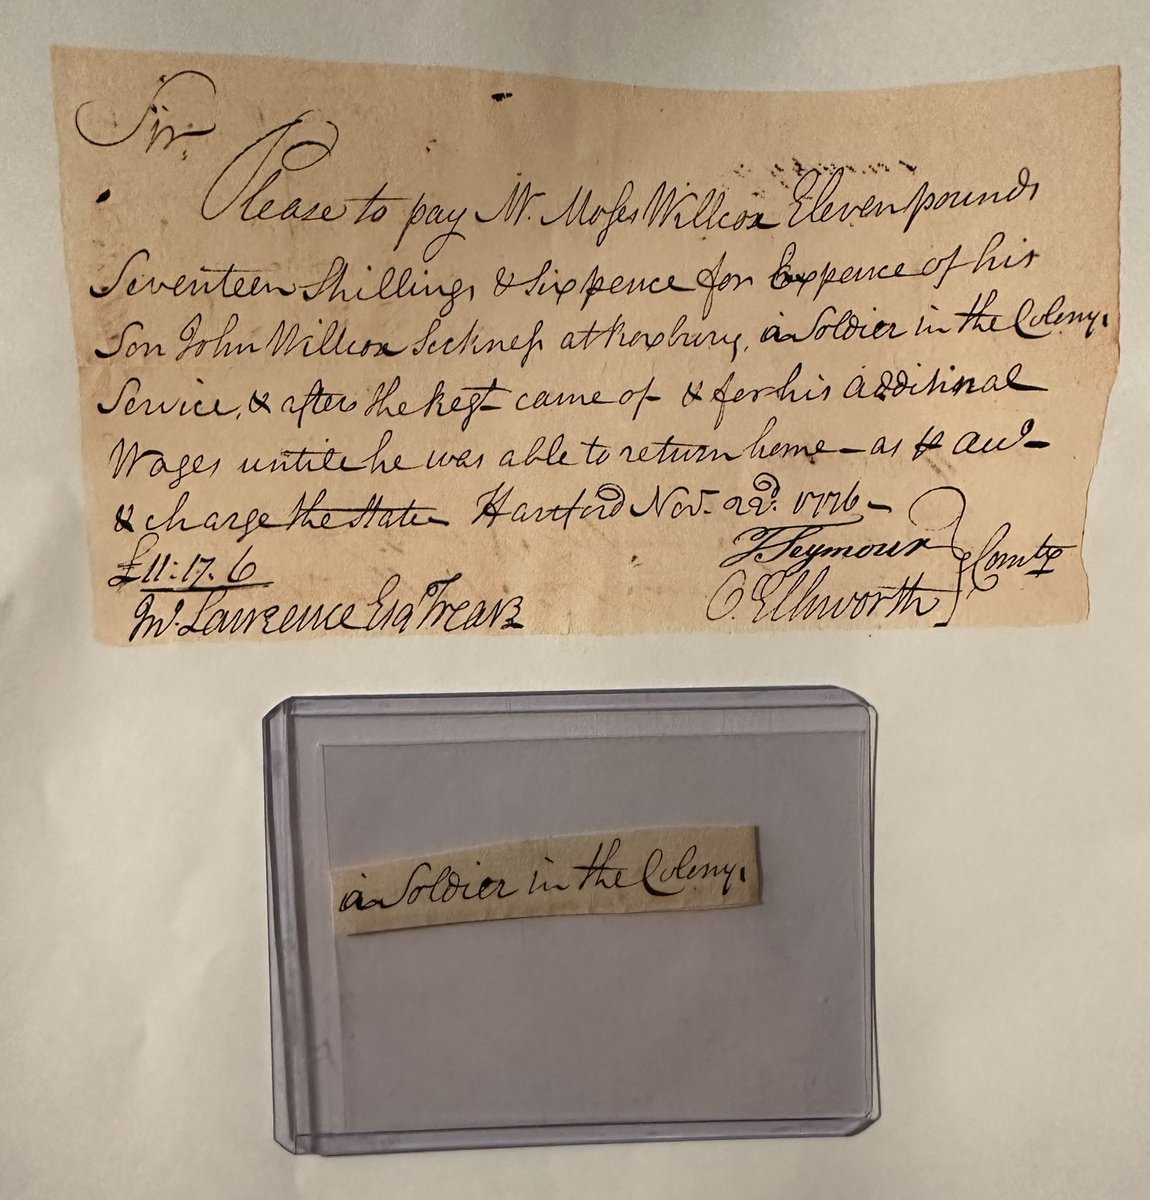 Sir
Please to pay Mr. Moses Willcox Eleven pounds
Seventeen Shillings & Six pence for Expence of his
Son John Willcox Sickness at Roxbury, a Soldier in the Colony
Service, & after the Regt came of & for his additinal
Wages untill he was able to return home – as
& charge the State Hartford Nov. 22d. 1776 –
£11:17.6
T Seymour
Jno. Lawrence Esqr Treasr
O. Ellsworth
Comtee
a Soldier in the Colony.